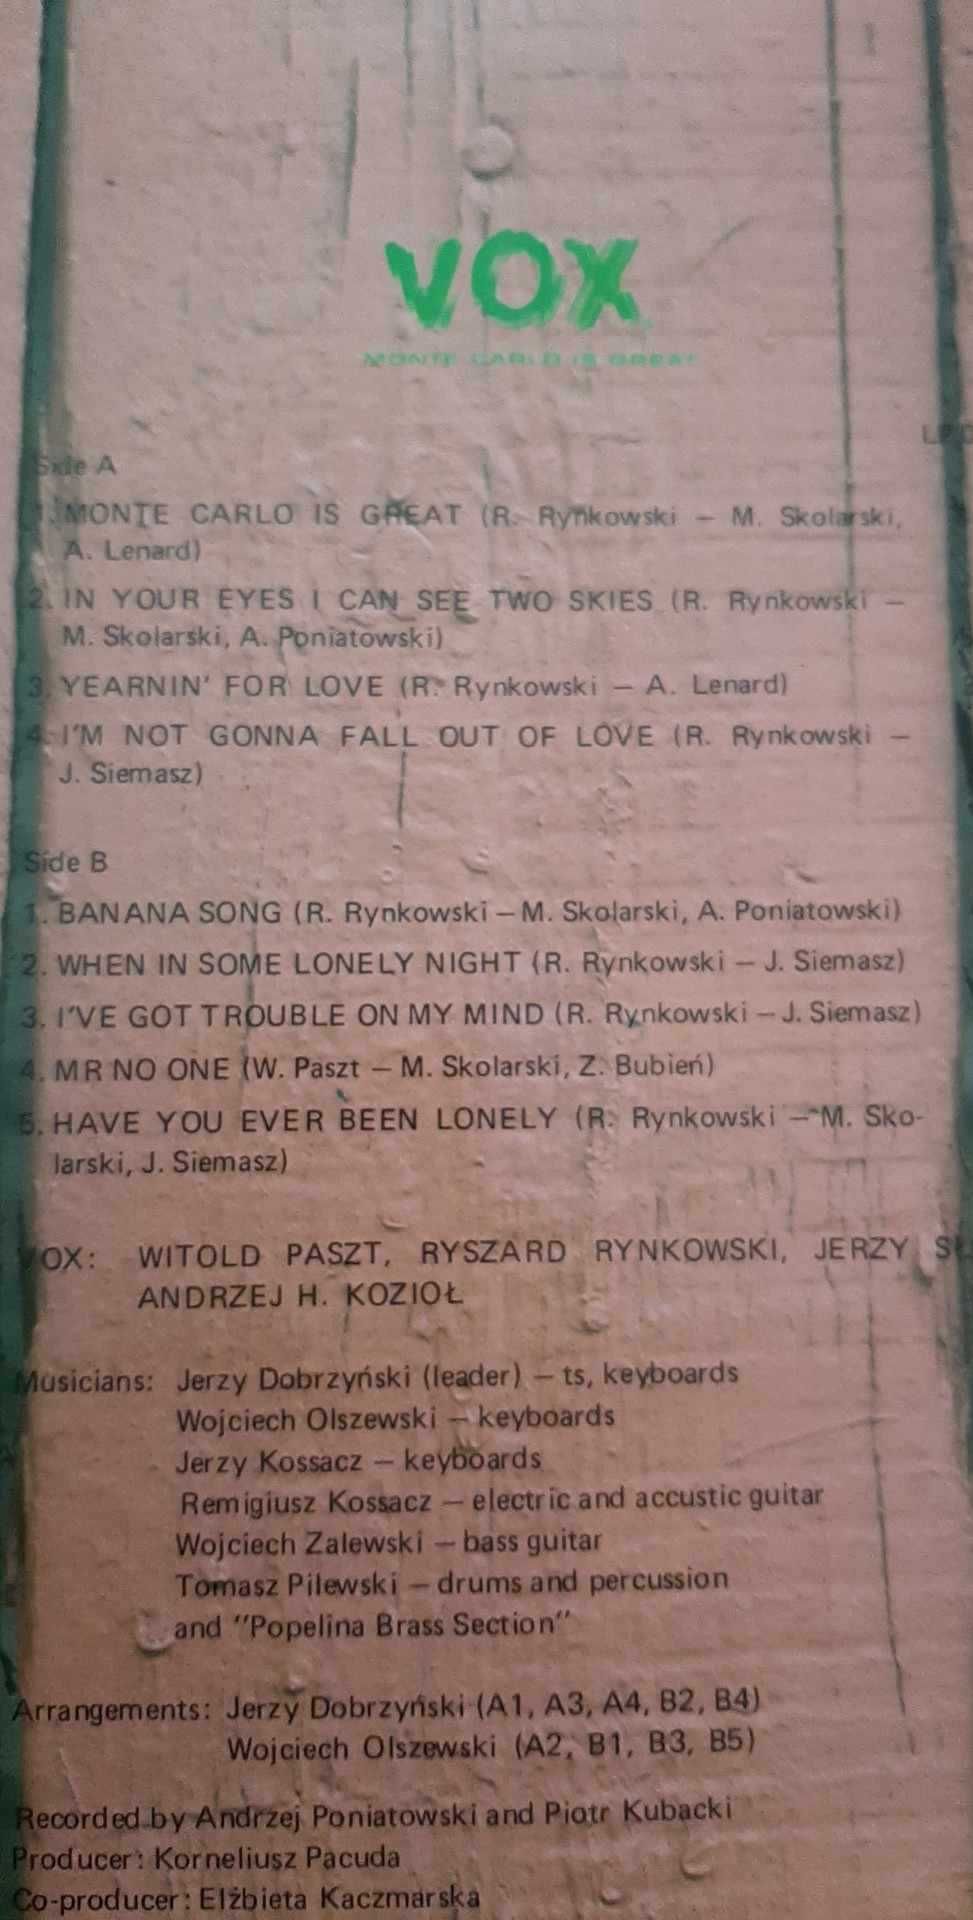 VOX
MONTE CARLO IS GREAT
Side A
1. MONTE CARLO IS GREAT (R. Rynkowski – M. Skolarski,
A. Lenard)
2. IN YOUR EYES I CAN SEE TWO SKIES (R. Rynkowski –
M. Skolarski, A. Poniatowski)
3. YEARNIN' FOR LOVE (R. Rynkowski – A. Lenard)
4. I'M NOT GONNA FALL OUT OF LOVE (R. Rynkowski –
J. Siemasz)
Side B
1. BANANA SONG (R. Rynkowski – M. Skolarski, A. Poniatowski)
2. WHEN IN SOME LONELY NIGHT (R. Rynkowski – J. Siemasz)
3. I'VE GOT TROUBLE ON MY MIND (R. Rynkowski – J. Siemasz)
4. MR NO ONE (W. Paszt – M. Skolarski, Z. Bubień)
5. HAVE YOU EVER BEEN LONELY (R. Rynkowski – M. Sko-
larski, J. Siemasz)
VOX: WITOLD PASZT, RYSZARD RYNKOWSKI, JERZY
ANDRZEJ H. KOZIOŁ
Musicians: Jerzy Dobrzyński (leader) – ts, keyboards
Wojciech Olszewski – keyboards
Jerzy Kossacz – keyboards
Remigiusz Kossacz – electric and accustic guitar
Wojciech Zalewski – bass guitar
Tomasz Pilewski – drums and percussion
and "Popelina Brass Section"
Arrangements: Jerzy Dobrzyński (A1, A3, A4, B2, B4)
Wojciech Olszewski (A2, B1, B3, B5)
Recorded by Andrzej Poniatowski and Piotr Kubacki
Producer: Korneliusz Pacuda
Co-producer: Elżbieta Kaczmarska